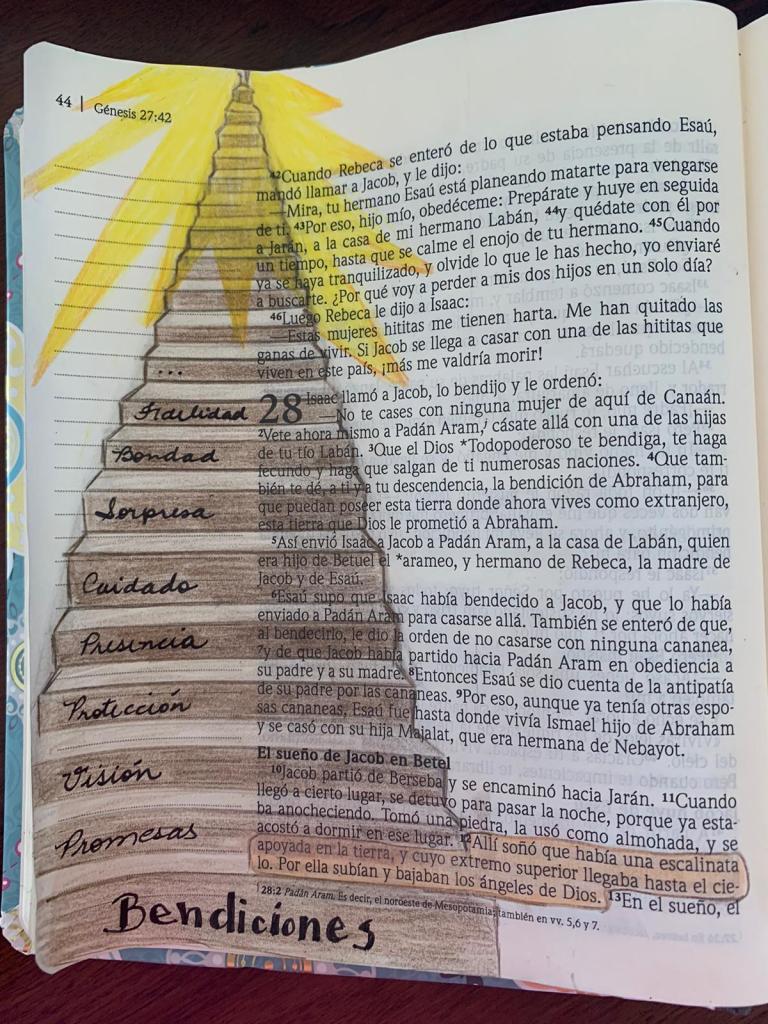 44 | Génesis 27:42
⁴²Cuando Rebeca se enteró de lo que estaba pensando Esaú,
mandó llamar a Jacob, y le dijo:
—Mira, tu hermano Esaú está planeando matarte para vengarse
de ti. ⁴³Por eso, hijo mío, obedéceme: Prepárate y huye en seguida
a Jarán, a la casa de mi hermano Labán, ⁴⁴y quédate con él por
un tiempo, hasta que se calme el enojo de tu hermano. ⁴⁵Cuando
ya se haya tranquilizado, y olvide lo que le has hecho, yo enviaré
a buscarte. ¿Por qué voy a perder a mis dos hijos en un solo día?
⁴⁶Luego Rebeca le dijo a Isaac:
—Estas mujeres hititas me tienen harta. Me han quitado las
ganas de vivir. Si Jacob se llega a casar con una de las hititas que
viven en este país, ¡más me valdría morir!
28 Isaac llamó a Jacob, lo bendijo y le ordenó:
—No te cases con ninguna mujer de aquí de Canaán.
²Vete ahora mismo a Padán Aram,ⁱ cásate allá con una de las hijas
de tu tío Labán. ³Que el Dios *Todopoderoso te bendiga, te haga
fecundo y haga que salgan de ti numerosas naciones. ⁴Que tam-
bién te dé, a ti y a tu descendencia, la bendición de Abraham, para
que puedan poseer esta tierra donde ahora vives como extranjero,
esta tierra que Dios le prometió a Abraham.
⁵Así envió Isaac a Jacob a Padán Aram, a la casa de Labán, quien
era hijo de Betuel el *arameo, y hermano de Rebeca, la madre de
Jacob y de Esaú.
⁶Esaú supo que Isaac había bendecido a Jacob, y que lo había
enviado a Padán Aram para casarse allá. También se enteró de que,
al bendecirlo, le dio la orden de no casarse con ninguna cananea,
⁷y de que Jacob había partido hacia Padán Aram en obediencia a
su padre y a su madre. ⁸Entonces Esaú se dio cuenta de la antipatía
de su padre por las cananeas. ⁹Por eso, aunque ya tenía otras espo-
sas cananeas, Esaú fue hasta donde vivía Ismael hijo de Abraham
y se casó con su hija Majalat, que era hermana de Nebayot.
El sueño de Jacob en Betel
¹⁰Jacob partió de Berseba y se encaminó hacia Jarán. ¹¹Cuando
llegó a cierto lugar, se detuvo para pasar la noche, porque ya esta-
ba anocheciendo. Tomó una piedra, la usó como almohada, y se
acostó a dormir en ese lugar. ¹²Allí soñó que había una escalinata
apoyada en la tierra, y cuyo extremo superior llegaba hasta el cie-
lo. Por ella subían y bajaban los ángeles de Dios. ¹³En el sueño, el
ⁱ 28:2 Padán Aram. Es decir, el noroeste de Mesopotamia; también en vv. 5,6 y 7.
...
Fidelidad
Bondad
Sorpresa
Cuidado
Presencia
Protección
Visión
Promesas
Bendiciones